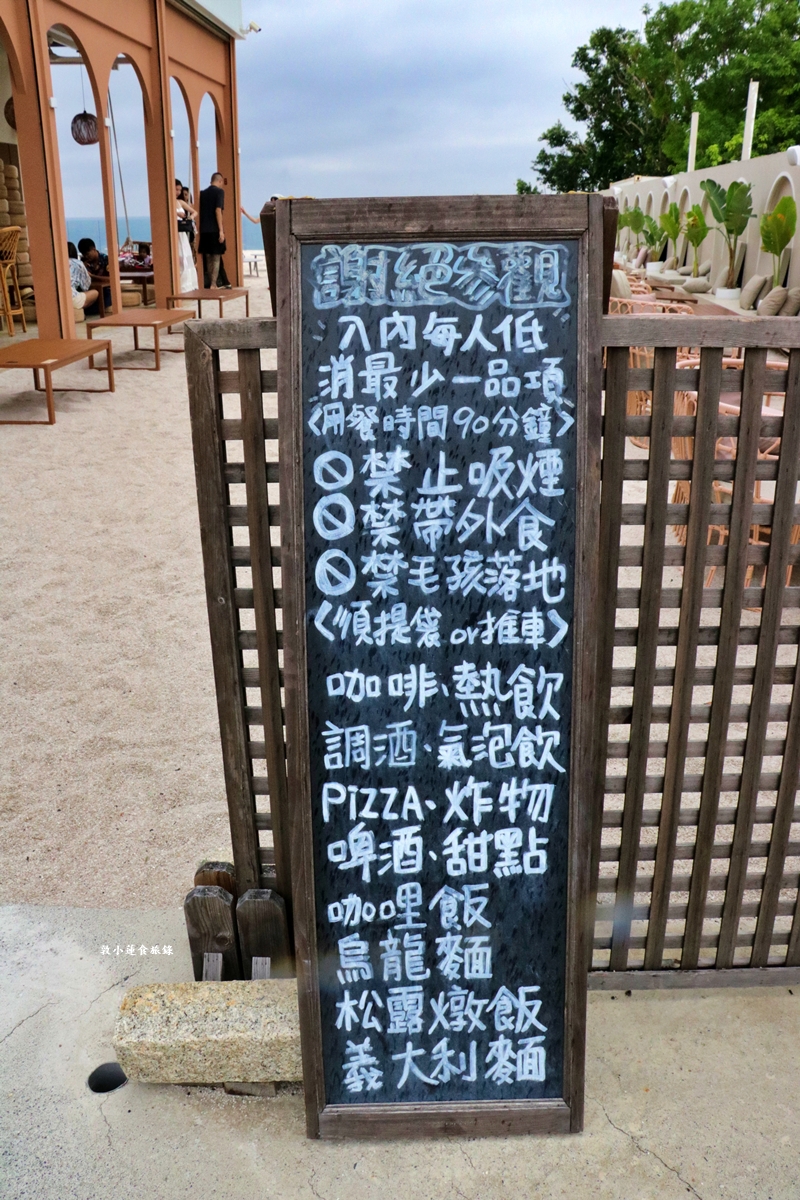 謝絕參觀
入內每人低
消最少一品項
<用餐時間90分鐘>
禁止吸煙
禁帶外食
禁毛孩落地
<順提袋or推車>
咖啡、熱飲
調酒、氣泡飲
PiZZA、炸物
啤酒、甜點
咖哩飯
烏龍麵
松露燉飯
義大利麵
敦小蓮食旅錄